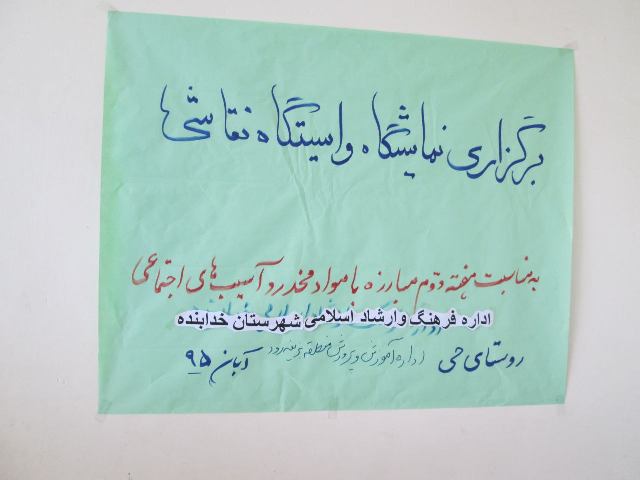 برگزاری نمایشگاه وایستگاه نقاشی ها
به مناسبت هفته دوم مبارزه با مواد مخدر و آسیب های اجتماعی
اداره فرهنگ وارشاد اسلامی شهرستان خدابنده
روستای حی اداره آموزش و پرورش منطقه بزینه رود آبان ۹۵